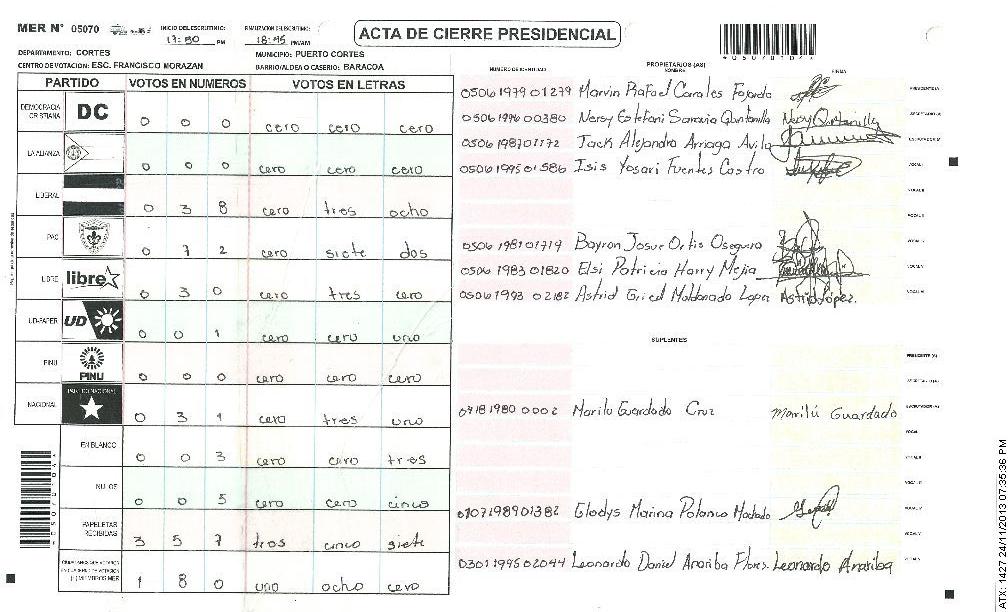 MER N° 05070
INICIO DEL ESCRUTINIO:
17:50 PM
FINALIZACION DEL ESCRUTINIO:
18:45 PM/AM
ACTA DE CIERRE PRESIDENCIAL
DEPARTAMENTO: CORTES
MUNICIPIO: PUERTO CORTES
CENTRO DE VOTACION: ESC. FRANCISCO MORAZAN
BARRIO/ALDEA O CASERIO: BARACOA
PARTIDO VOTOS EN NUMEROS VOTOS EN LETRAS
DEMOCRACIA CRISTIANA DC 0 0 0 cero cero cero
LA ALIANZA 0 0 0 cero cero cero
LIBERAL 0 3 8 cero tres ocho
PAC 0 7 2 cero siete dos
LIBRE libre 0 3 0 cero tres cero
UD-FAPER UD 0 0 1 cero cero uno
PINU PINU 0 0 0 cero cero cero
NACIONAL PARTIDO NACIONAL 0 3 1 cero tres uno
EN BLANCO 0 0 3 cero cero tres
NULOS 0 0 5 cero cero cinco
PAPELETAS RECIBIDAS 3 5 7 tres cinco siete
1 8 0 uno ocho cero
NUMERO DE IDENTIDAD PROPIETARIOS (AS) NOMBRE FIRMA
0506 1979 01279 Marvin Rafael Canales Fajardo PRESIDENTE/A
0506 1996 00380 Nersy Estefani Saravia Quintanilla Nersy Quintanilla SECRETARIO (A)
0506 1987 01172 Jack Alejandro Arriaga Avila ESCRUTADOR (A)
0506 1995 01586 Isis Yosari Fuentes Castro VOCAL I
VOCAL II
VOCAL III
0506 1981 01719 Bayron Josue Ortis Oseguera VOCAL IV
0506 1983 01820 Elsi Patricia Harry Mejia VOCAL V
0506 1993 02182 Astrid Gricel Maldonado Lopez Astrid López. VOCAL VI
SUPLENTES
PRESIDENTE (A)
SECRETARIO (A)
0718 1980 0002 Marilu Guardado Cruz Marilú Guardado ESCRUTADOR (A)
VOCAL I
VOCAL II
VOCAL III
0107 1989 01382 Glodys Marina Polanco Machado VOCAL IV
VOCAL V
0301 1995 02044 Leonardo Daniel Anariba Flores. Leonardo Anariba
ATX: 1427 24/11/2013 07:35:36 PM